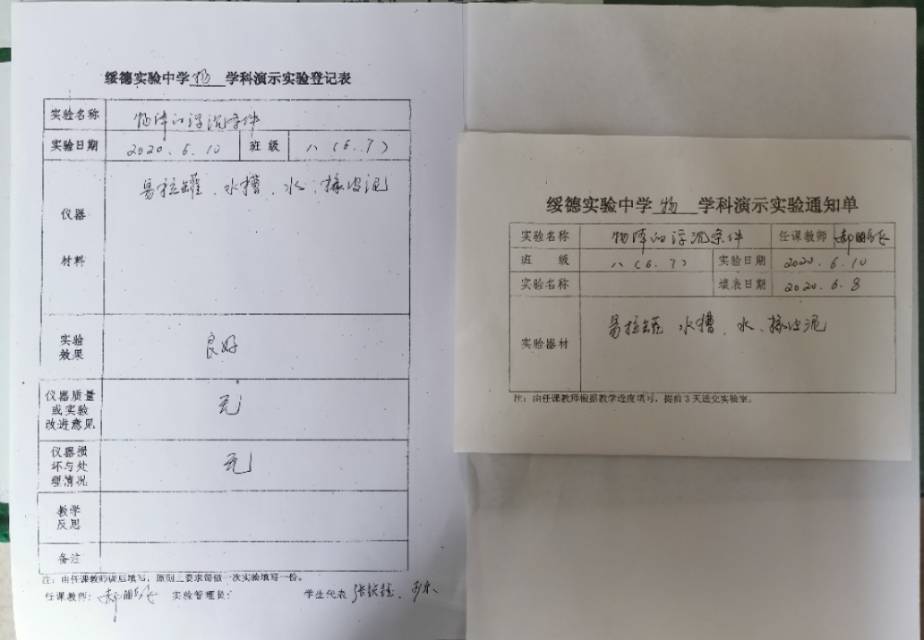 绥德实验中学 物 学科演示实验登记表
实验名称 物体的浮沉条件
实验日期 2020.6.10 班级 八(6.7)
仪器
材料
易拉罐、水槽、水、橡皮泥
实验
效果
良好
仪器质量
或实验
改进意见
无
仪器损
坏与处
理情况
无
教学
反思
备注
注:由任课教师课后填写,原则上要求每做一次实验填写一份。
任课教师: 实验管理员: 学生代表
绥德实验中学 物 学科演示实验通知单
实验名称 物体的浮沉条件 任课教师
班 级 八(6.7) 实验日期 2020.6.10
实验名称 填表日期 2020.6.8
实验器材 易拉罐 水槽、水、橡皮泥
注:由任课教师根据教学进度填写,提前3天送交实验室。